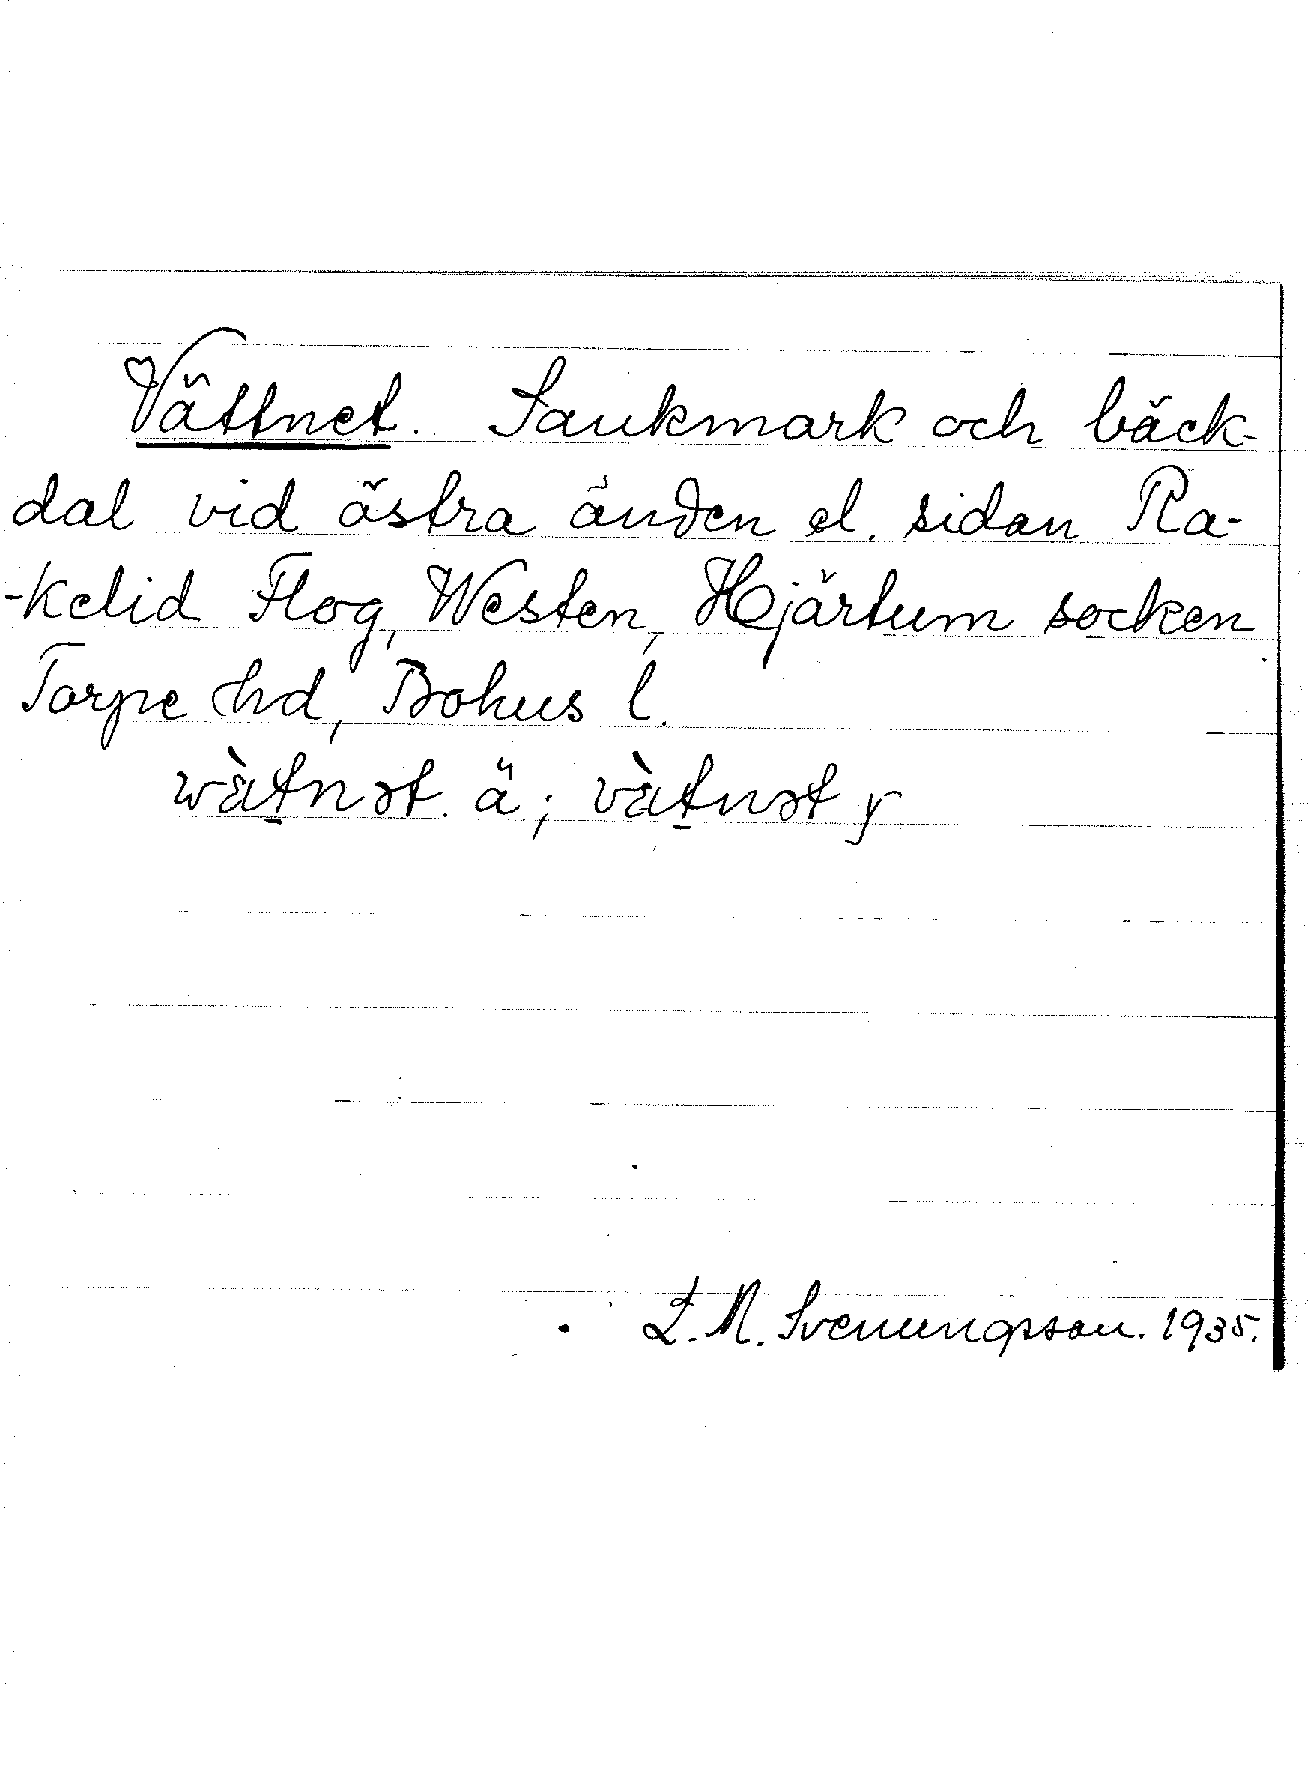 Vättnet. Sankmark och bäck-
dal vid östra änden el. sidan Ra-
-kelid Flog, Westen, Hjärtum socken
Torpe hd, Bohus l.
wàtnət ä; vàtnət y
L. M. Svenungsson. 1935.